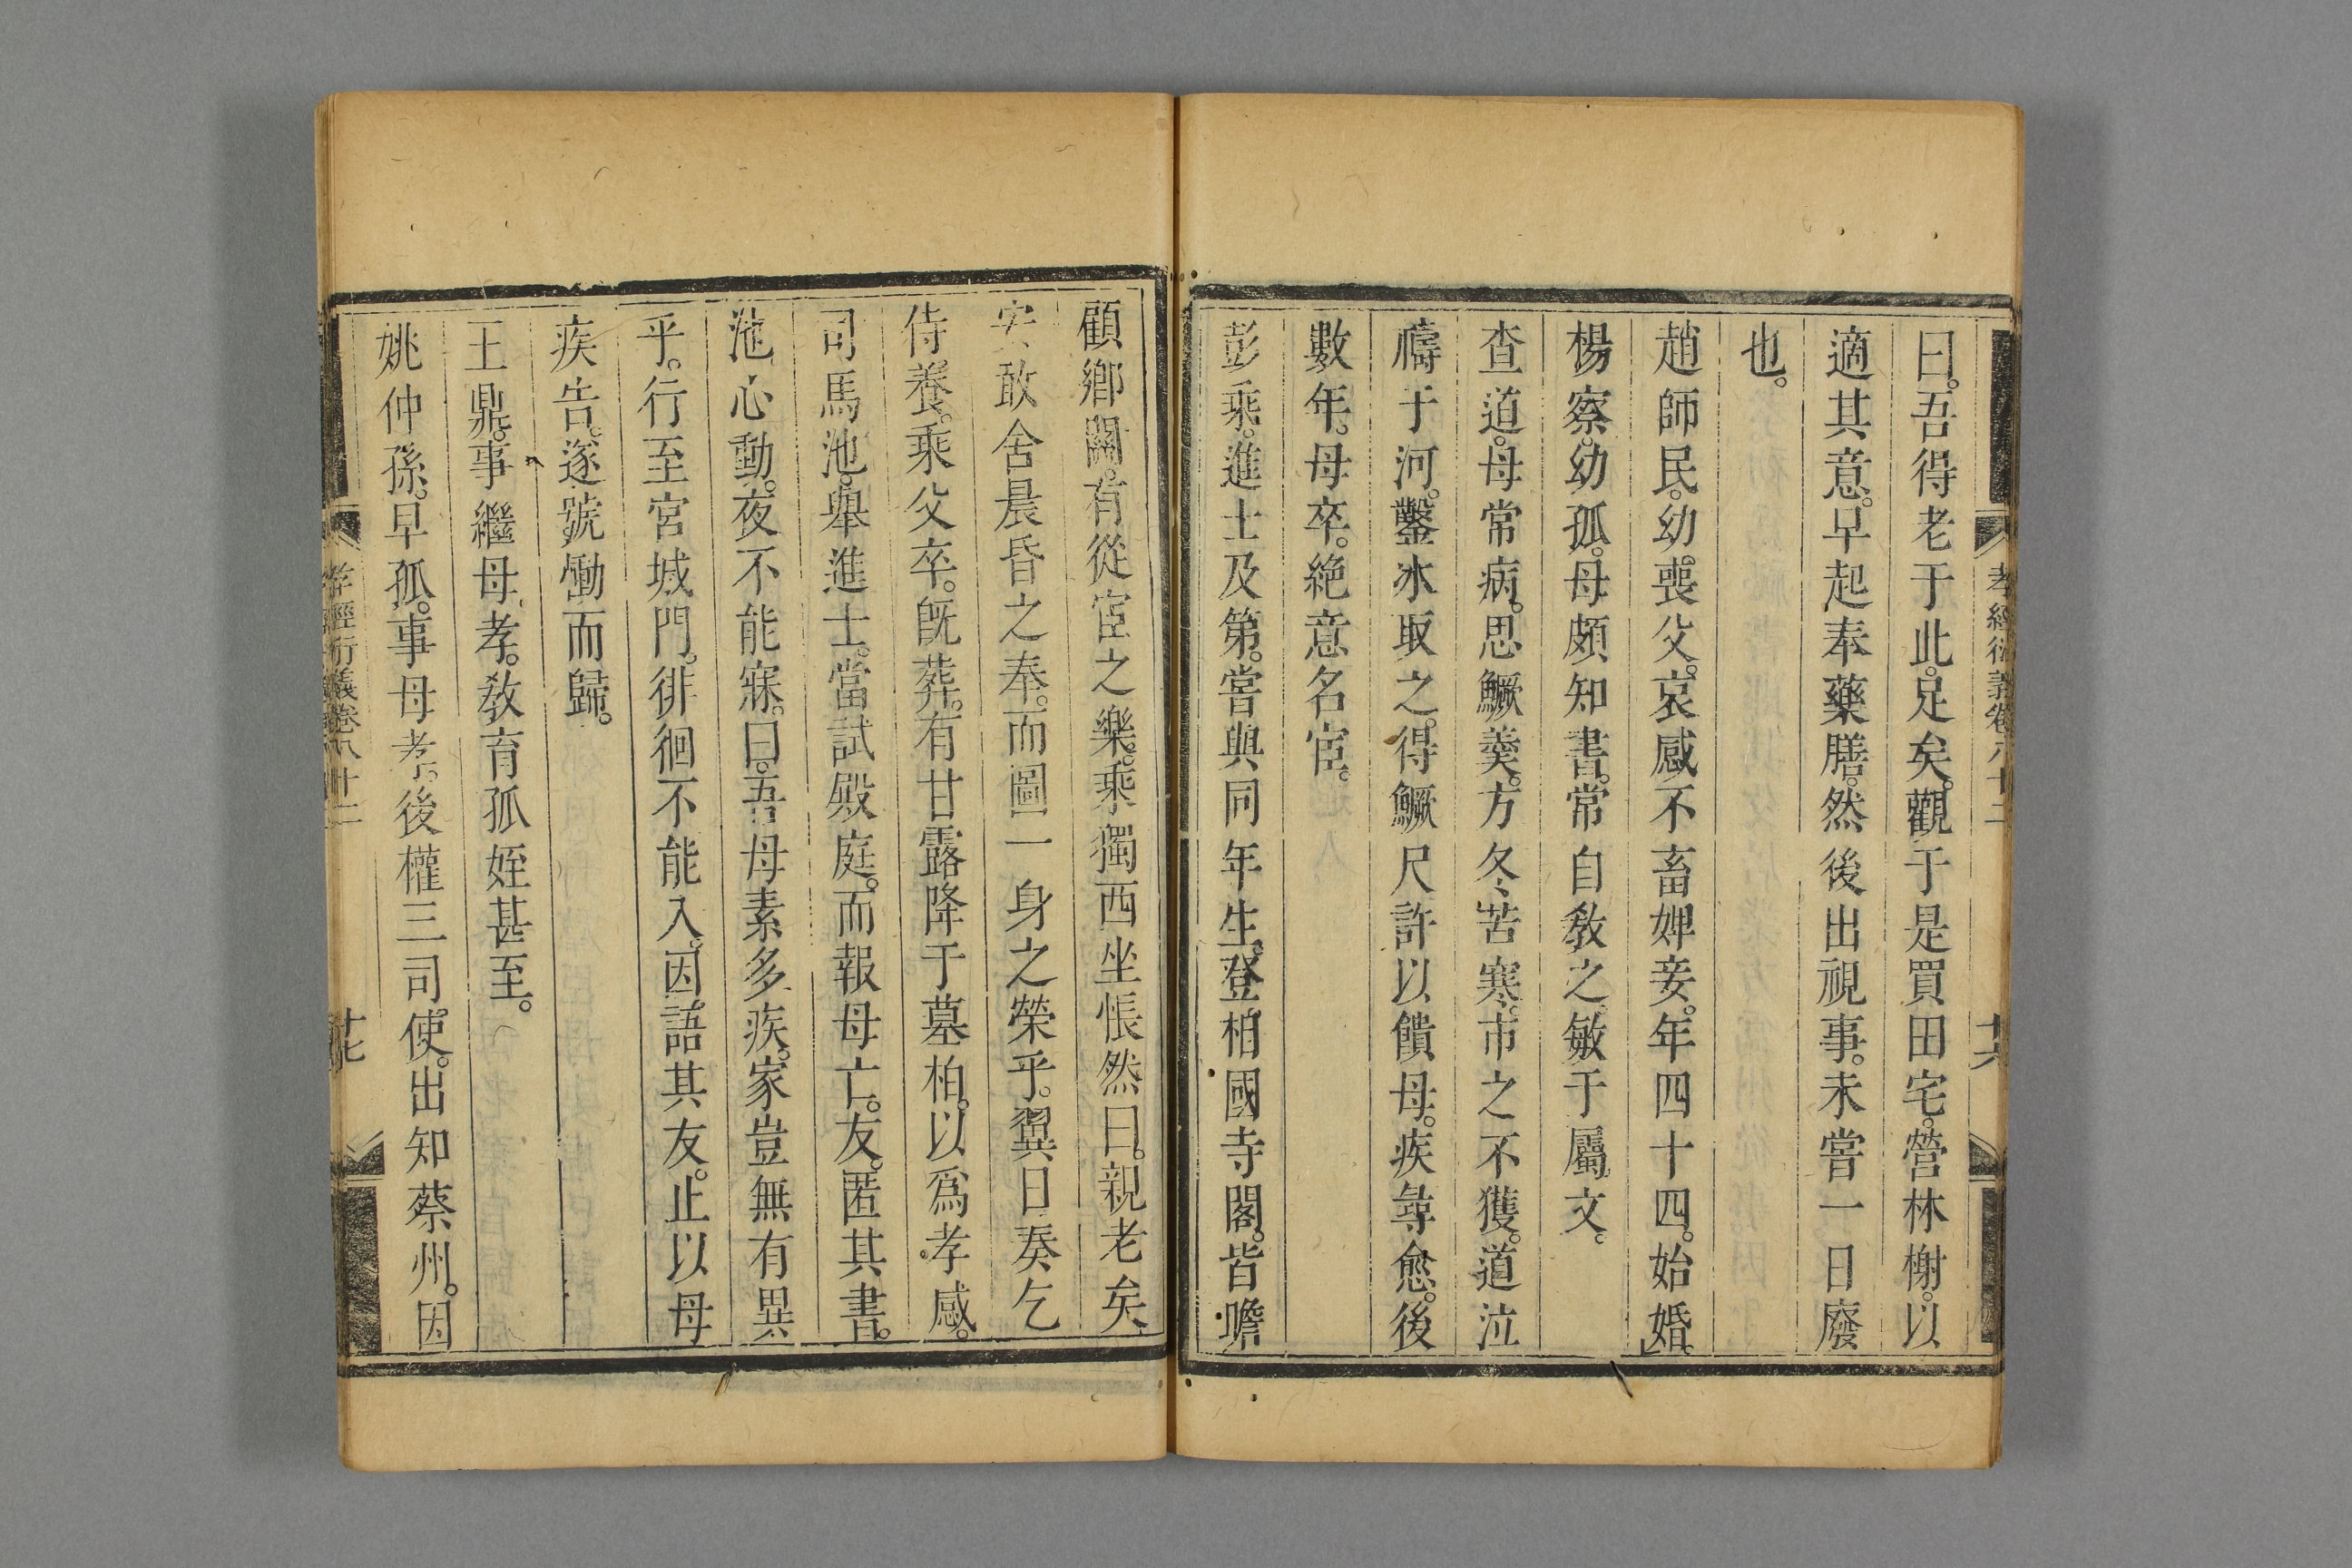 孝經衍義卷八十二
十六
曰。吾得老于此。足矣。觀于是買田宅。營林榭。以
適其意。早起奉藥膳。然後出視事。未嘗一日廢
也。
趙師民。幼喪父。哀感不畜婢妾。年四十四。始婚。
楊察。幼孤。母頗知書。常自教之。敏于屬文。
查道。母常病。思鱖羹。方冬苦寒。市之不獲。道泣
禱于河。鑿冰取之。得鱖尺許以饋母。疾尋愈。後
數年。母卒。絶意名宦。
彭乘。進士及第。嘗與同年生。登相國寺閣。皆瞻
顧鄉關。有從宦之樂。乘獨西坐悵然曰。親老矣
安敢舍晨昏之奉。而圖一身之榮乎。翼日奏乞
侍養。乘父卒。旣葬。有甘露降于墓柏。以爲孝感。
司馬池。舉進士。當試殿庭。而報母亡。友匿其書。
池心動。夜不能寐。曰。吾母素多疾。家豈無有異
乎。行至宮城門。徘徊不能入。因語其友。止以母
疾告。遂號慟而歸。
王鼎。事繼母孝。敎育孤姪甚至。
姚仲孫。早孤。事母孝。後權三司使。出知蔡州。因
孝經衍義卷八十二
十七